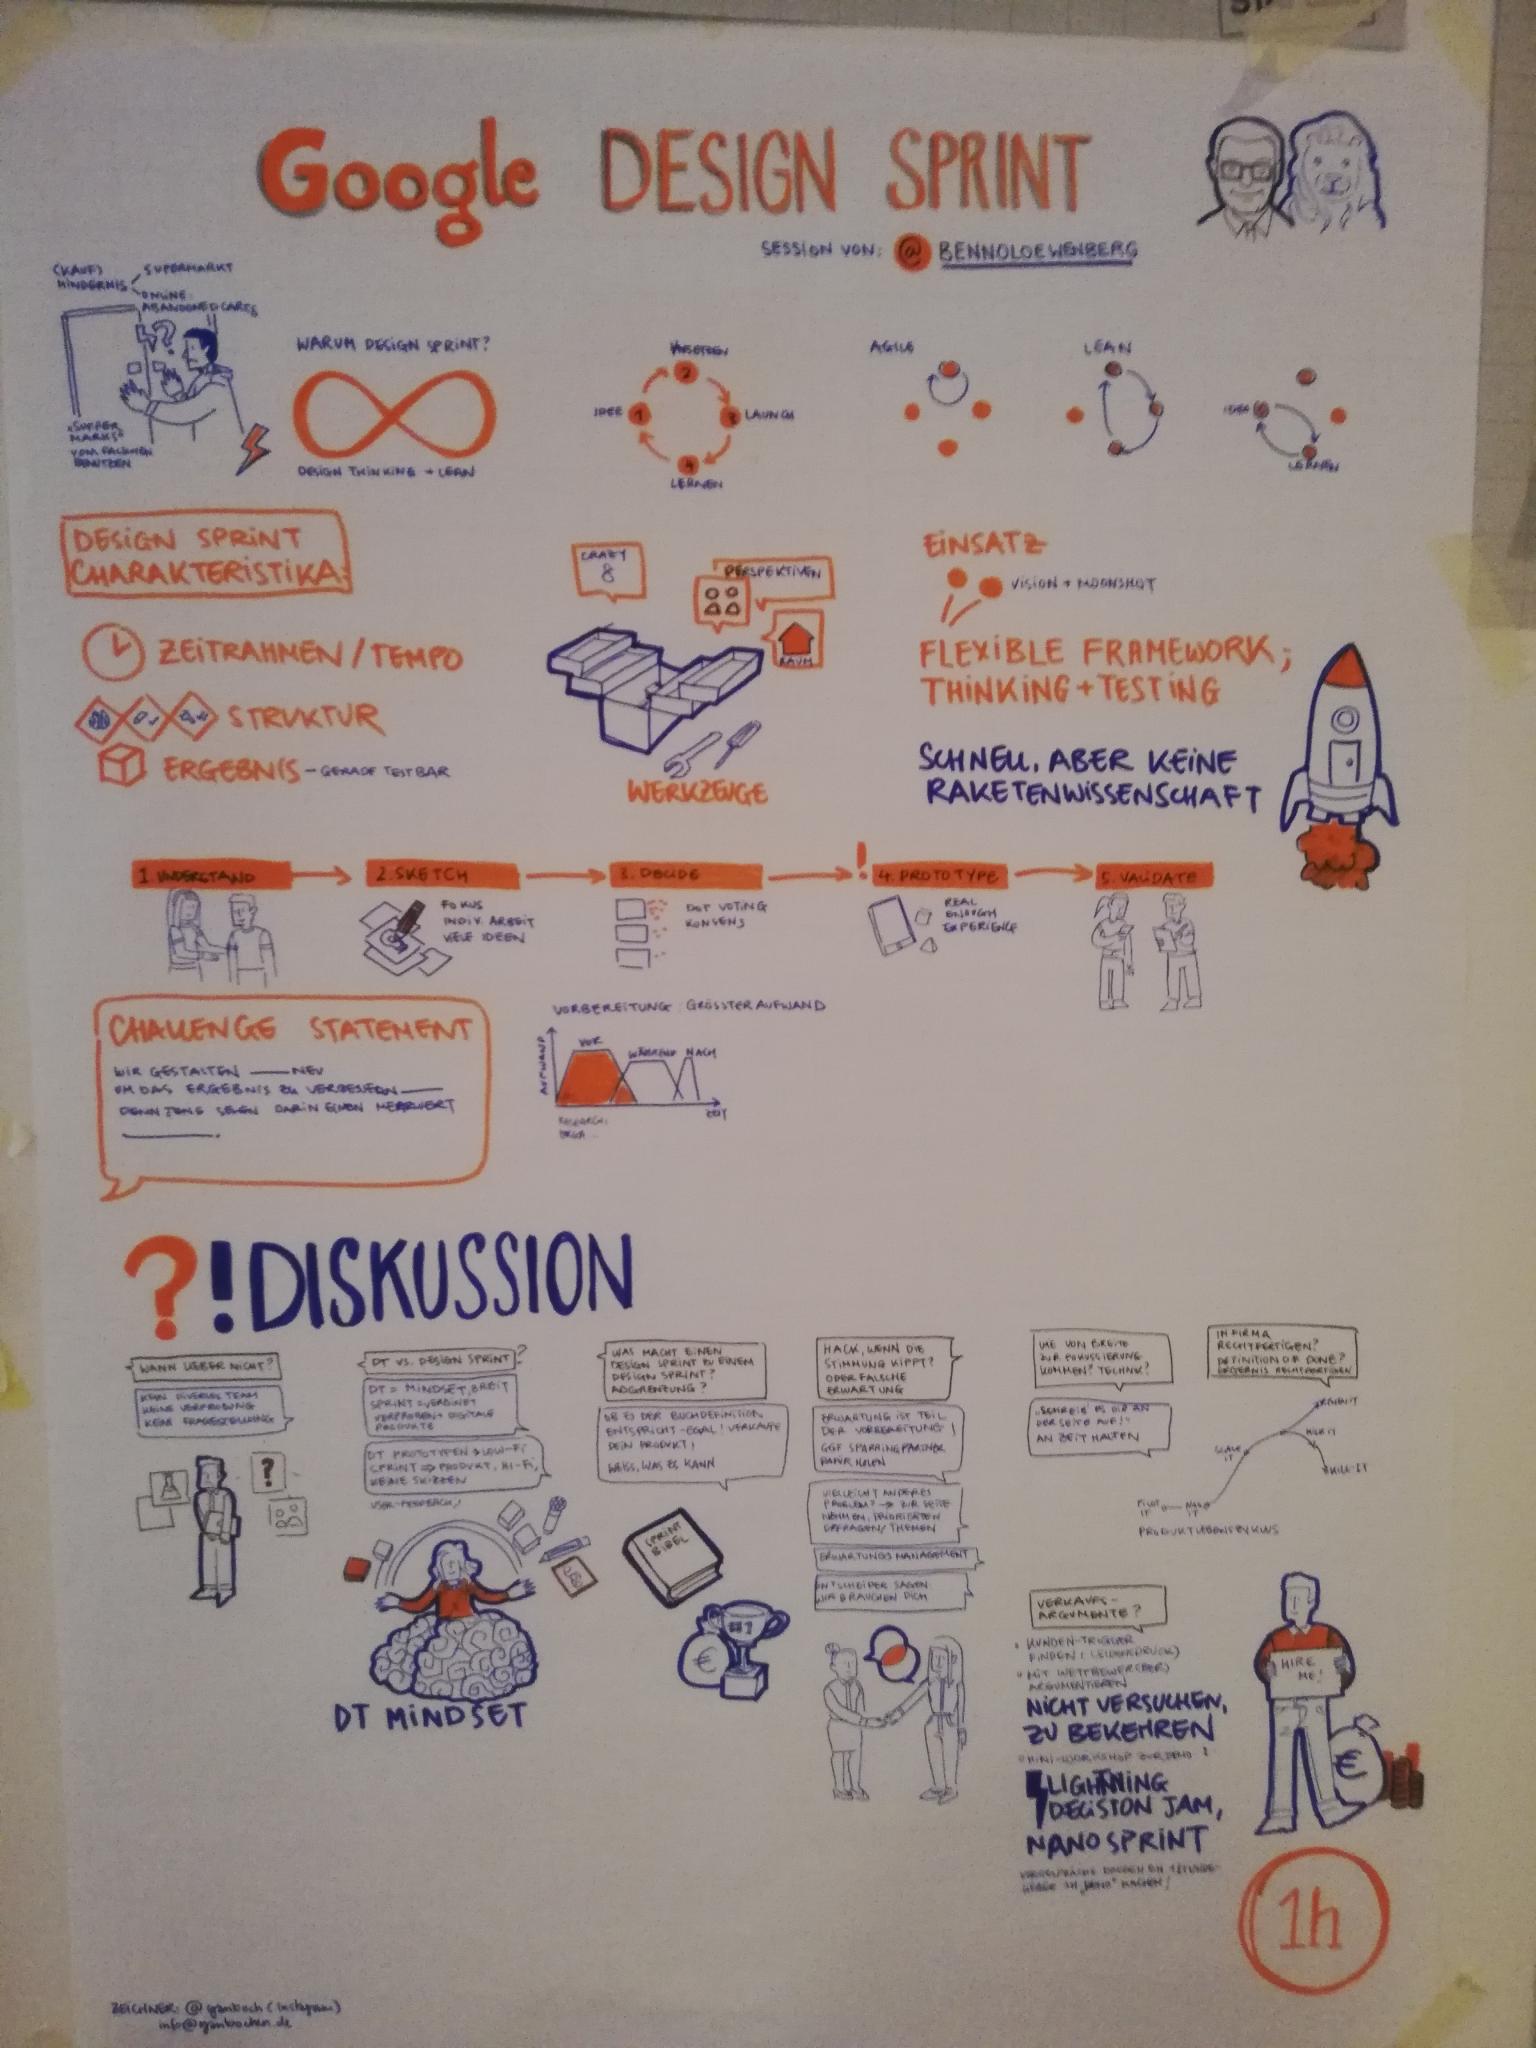 Google DESIGN SPRINT
SESSION VON: @ BENNOLOEWENBERG
(KAUF)
HINDERNIS
SUPERMARKT
ONLINE:
ABANDONED CARTS
?
VOM FALSCHEN
BENUTZEN
WARUM DESIGN SPRINT?
DESIGN THINKING + LEAN
UMSETZEN
2
IDEE 1
3 LAUNCH
4
LERNEN
AGILE
LEAN
IDEE
LERNEN
DESIGN SPRINT
CHARAKTERISTIKA:
ZEITRAHMEN / TEMPO
STRUKTUR
ERGEBNIS - GERADE TESTBAR
CRAZY
8
PERSPEKTIVEN
RAUM
WERKZEUGE
EINSATZ
VISION + MOONSHOT
FLEXIBLE FRAMEWORK;
THINKING + TESTING
SCHNELL, ABER KEINE
RAKETENWISSENSCHAFT
1 UNDERSTAND
2. SKETCH
FOKUS
INDIV. ARBEIT
VIELE IDEEN
3. DECIDE
DOT VOTING
KONSENS
!
4. PROTOTYPE
REAL
ENOUGH
EXPERIENCE
5. VALIDATE
CHALLENGE STATEMENT
WIR GESTALTEN ____ NEU
UM DAS ERGEBNIS ZU VERBESSERN ____
DENN SEHEN DARIN EINEN MEHRWERT
____.
VORBEREITUNG: GRÖSSTER AUFWAND
AUFWAND
VOR
WÄHREND
NACH
ZEIT
RESEARCH,
ORGA...
?! DISKUSSION
WANN LIEBER NICHT?
KEIN DIVERSES TEAM
KEINE VERPROBUNG
KEINE FRAGESTELLUNG
?
DT VS. DESIGN SPRINT?
DT = MINDSET, BREIT
SPRINT = VERBINET
VERPROBEN + DIGITALE
PRODUKTE
DT PROTOTYPEN → LOW-FI
SPRINT → PRODUKT, HI-FI,
KEINE SKIZZEN
USER-FEEDBACK!
DT MINDSET
WAS MACHT EINEN
DESIGN SPRINT ZU EINEM
DESIGN SPRINT?
ABGRENZUNG?
OB ES DER BUCHDEFINITION
ENTSPRICHT - EGAL! VERKAUFE
DEIN PRODUKT!
WEISS, WAS ES KANN
SPRINT
BIBEL
€
#1
HACK, WENN DIE
STIMMUNG KIPPT?
ODER FALSCHE
ERWARTUNG
ERWARTUNG IST TEIL
DER VORBEREITUNG!
GGF SPARRINGPARTNER
DAFÜR HOLEN
VIELLEICHT ANDERES
PROBLEM? → ZUR SEITE
NEHMEN, PRIORITÄTEN
ERFRAGEN/THEMEN
ERWARTUNGSMANAGEMENT
ENTSCHEIDER SAGEN
WIR BRAUCHEN DICH
WIE VON BREITE
ZUR FOKUSSIERUNG
KOMMEN? TECHNIK?
"SCHREIB' ES DIR AN
DER SEITE AUF!"
AN ZEIT HALTEN
IN FIRMA
RECHTFERTIGEN?
DEFINITION OF DONE?
ERGEBNIS RECHTFERTIGEN
PILOT
IT
NAIL
IT
SCALE
IT
MILK IT
KILL-IT
PRODUKTLEBENSZYKLUS
VERKAUFS-
ARGUMENTE?
• KUNDEN-TRIGGER
FINDEN (LEIDENSDRUCK)
• MIT WETTBEWERB(ER)
ARGUMENTIEREN
NICHT VERSUCHEN,
ZU BEKEHREN
MINI-WORKSHOP ZUR DEMO!
LIGHTNING
DECISION JAM,
NANOSPRINT
HIRE
ME!
€
1h
ZEICHNER: (Instagram)